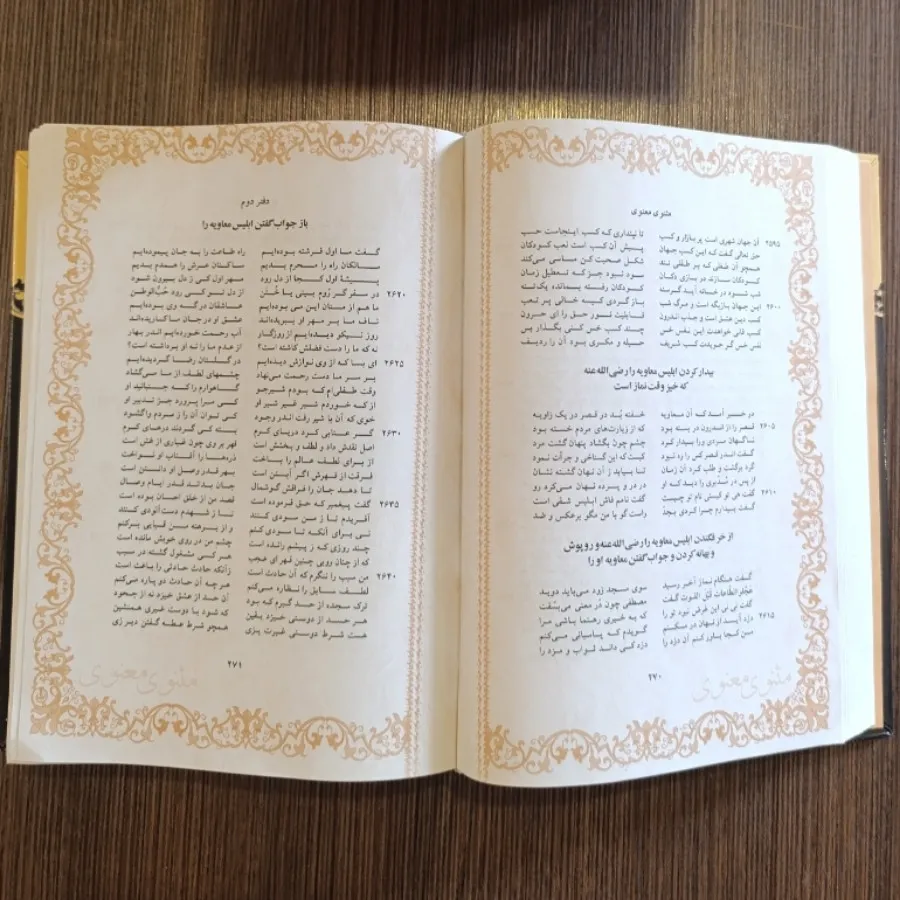 مثنوی معنوی
۲۵۹۵ آن جهان شهری است پر بازار و کسب تا نپنداری که کسب اینجاست حسب
حق تعالی گفت که این کسب جهان پیش آن کسب است لعب کودکان
همچو آن طفلی که بر طفلی تند شکل صحبت کن مساسی می‌کند
کودکان سازند در بازی دکان سود نبود جز که تعطیل زمان
شب شود در خانه آید گرسنه کودکان رفته بمانده یک‌تنه
۲۶۰۰ این جهان بازیگه است و مرگ شب باز گردی کیسه خالی پر تعب
کسب دین عشق است و جذب اندرون قابلیت نور حق را ای حرون
کسب فانی خواهدت این نفس خس چند کسب خس کنی بگذار بس
نفس خس گر جویدت کسب شریف حیله و مکری بود آن را ردیف
بیدار کردن ابلیس معاویه را رضی‌الله‌عنه
که خیز وقت نماز است
در خبر آمد که آن معاویه خفته بُد در قصر در یک زاویه
۲۶۰۵ قصر را از اندرون در بسته بود کز زیارت‌های مردم خسته بود
ناگهان مردی ورا بیدار کرد چشم چون بگشاد پنهان گشت مرد
گفت اندر قصر کس را ره نبود کیست که این گستاخی و جرأت نمود
گرد برگشت و طلب کرد آن زمان تا بیابد زان نهان گشته نشان
از پس در مُدْبِری را دید کو در در و پرده نهان می‌کرد رو
۲۶۱۰ گفت هی تو کیستی نام تو چیست گفت نامم فاش ابلیس شقی است
گفت بیدارم چرا کردی بجد راست گو با من مگو برعکس و ضد
از خر فگندن ابلیس معاویه را رضی‌الله‌عنه و روپوش
و بهانه کردن و جواب گفتن معاویه او را
گفت هنگام نماز آخر رسید سوی مسجد زود می‌باید دوید
عَجِّلوا الطّاعات قَبل الفَوت گفت مصطفی چون دُر معنی می‌بسُفت
گفت نی نی این غرض نبود تو را که به خیری رهنما باشی مرا
۲۶۱۵ دزد آید از نهان در مسکنم گویدم که پاسبانی می‌کنم
من کجا باور کنم آن دزد را دزد کی داند ثواب و مزد را
۲۷۰
مثنوی معنوی
دفتر دوم
باز جواب گفتن ابلیس معاویه را
گفت ما اول فرشته بوده‌ایم راه طاعت را به جان پیموده‌ایم
سالکان راه را محرم بدیم ساکنان عرش را همدم بدیم
پیشهٔ اول کجا از دل رود مهر اول کی ز دل بیرون شود
۲۶۲۰ در سفر گر رُوم بینی یا خُتَن از دل تو کی رود حبّ‌الوطن
ما هم از مستان این می بوده‌ایم عاشقان درگه وی بوده‌ایم
ناف ما بر مهر او ببریده‌اند عشق او در جان ما کاریده‌اند
روز نیکو دیده‌ایم از روزگار آب رحمت خورده‌ایم اندر بهار
نه که ما را دست فضلش کاشته است؟ از عدم ما را نه او برداشته است؟
۲۶۲۵ ای بسا که از وی نوازش دیده‌ایم در گلستان رضا گردیده‌ایم
بر سر ما دست رحمت می‌نهاد چشمه‌های لطف از ما می‌گشاد
وقت طفلی‌ام که بودم شیرجو گاهوارم را که جنبانید او
از که خوردم شیر غیر شیر او کی مرا پرورد جز تدبیر او
خوی که آن با شیر رفت اندر وجود کی توان آن را ز مردم واگشود
۲۶۳۰ گر عتابی کرد دریای کرم بسته کی گردند درهای کرم
اصل نقدش داد و لطف و بخشش است قهر بر وی چون غباری از غش است
از برای لطف عالم را بساخت ذره‌ها را آفتاب او نواخت
فرقت از قهرش اگر آبستن است بهر قدر وصل او دانستن است
تا دهد جان را فراقش گوشمال جان بداند قدر ایام وصال
۲۶۳۵ گفت پیغمبر که حق فرموده است قصد من از خلق احسان بوده است
آفریدم تا ز من سودی کنند تا ز شهدم دست‌آلودی کنند
نی برای آنکه تا سودی کنم و از برهنه من قبایی برکنم
چند روزی که ز پیشم رانده است چشم من در روی خوبش مانده است
که از چنان رویی چنین قهر ای عجب هر کسی مشغول گشته در سبب
۲۶۴۰ من سبب را ننگرم که آن حادث است زآنکه حادث حادثی را باعث است
لطف سابق را نظاره می‌کنم هرچه آن حادث دو پاره می‌کنم
ترک سجده از حسد گیرم که بود آن حسد از عشق خیزد نه از جحود
هر حسد از دوستی خیزد یقین که شود با دوست غیری همنشین
هست شرط دوستی غیرت پزی همچو شرط عطسه گفتن دیر زی
۲۷۱
مثنوی معنوی